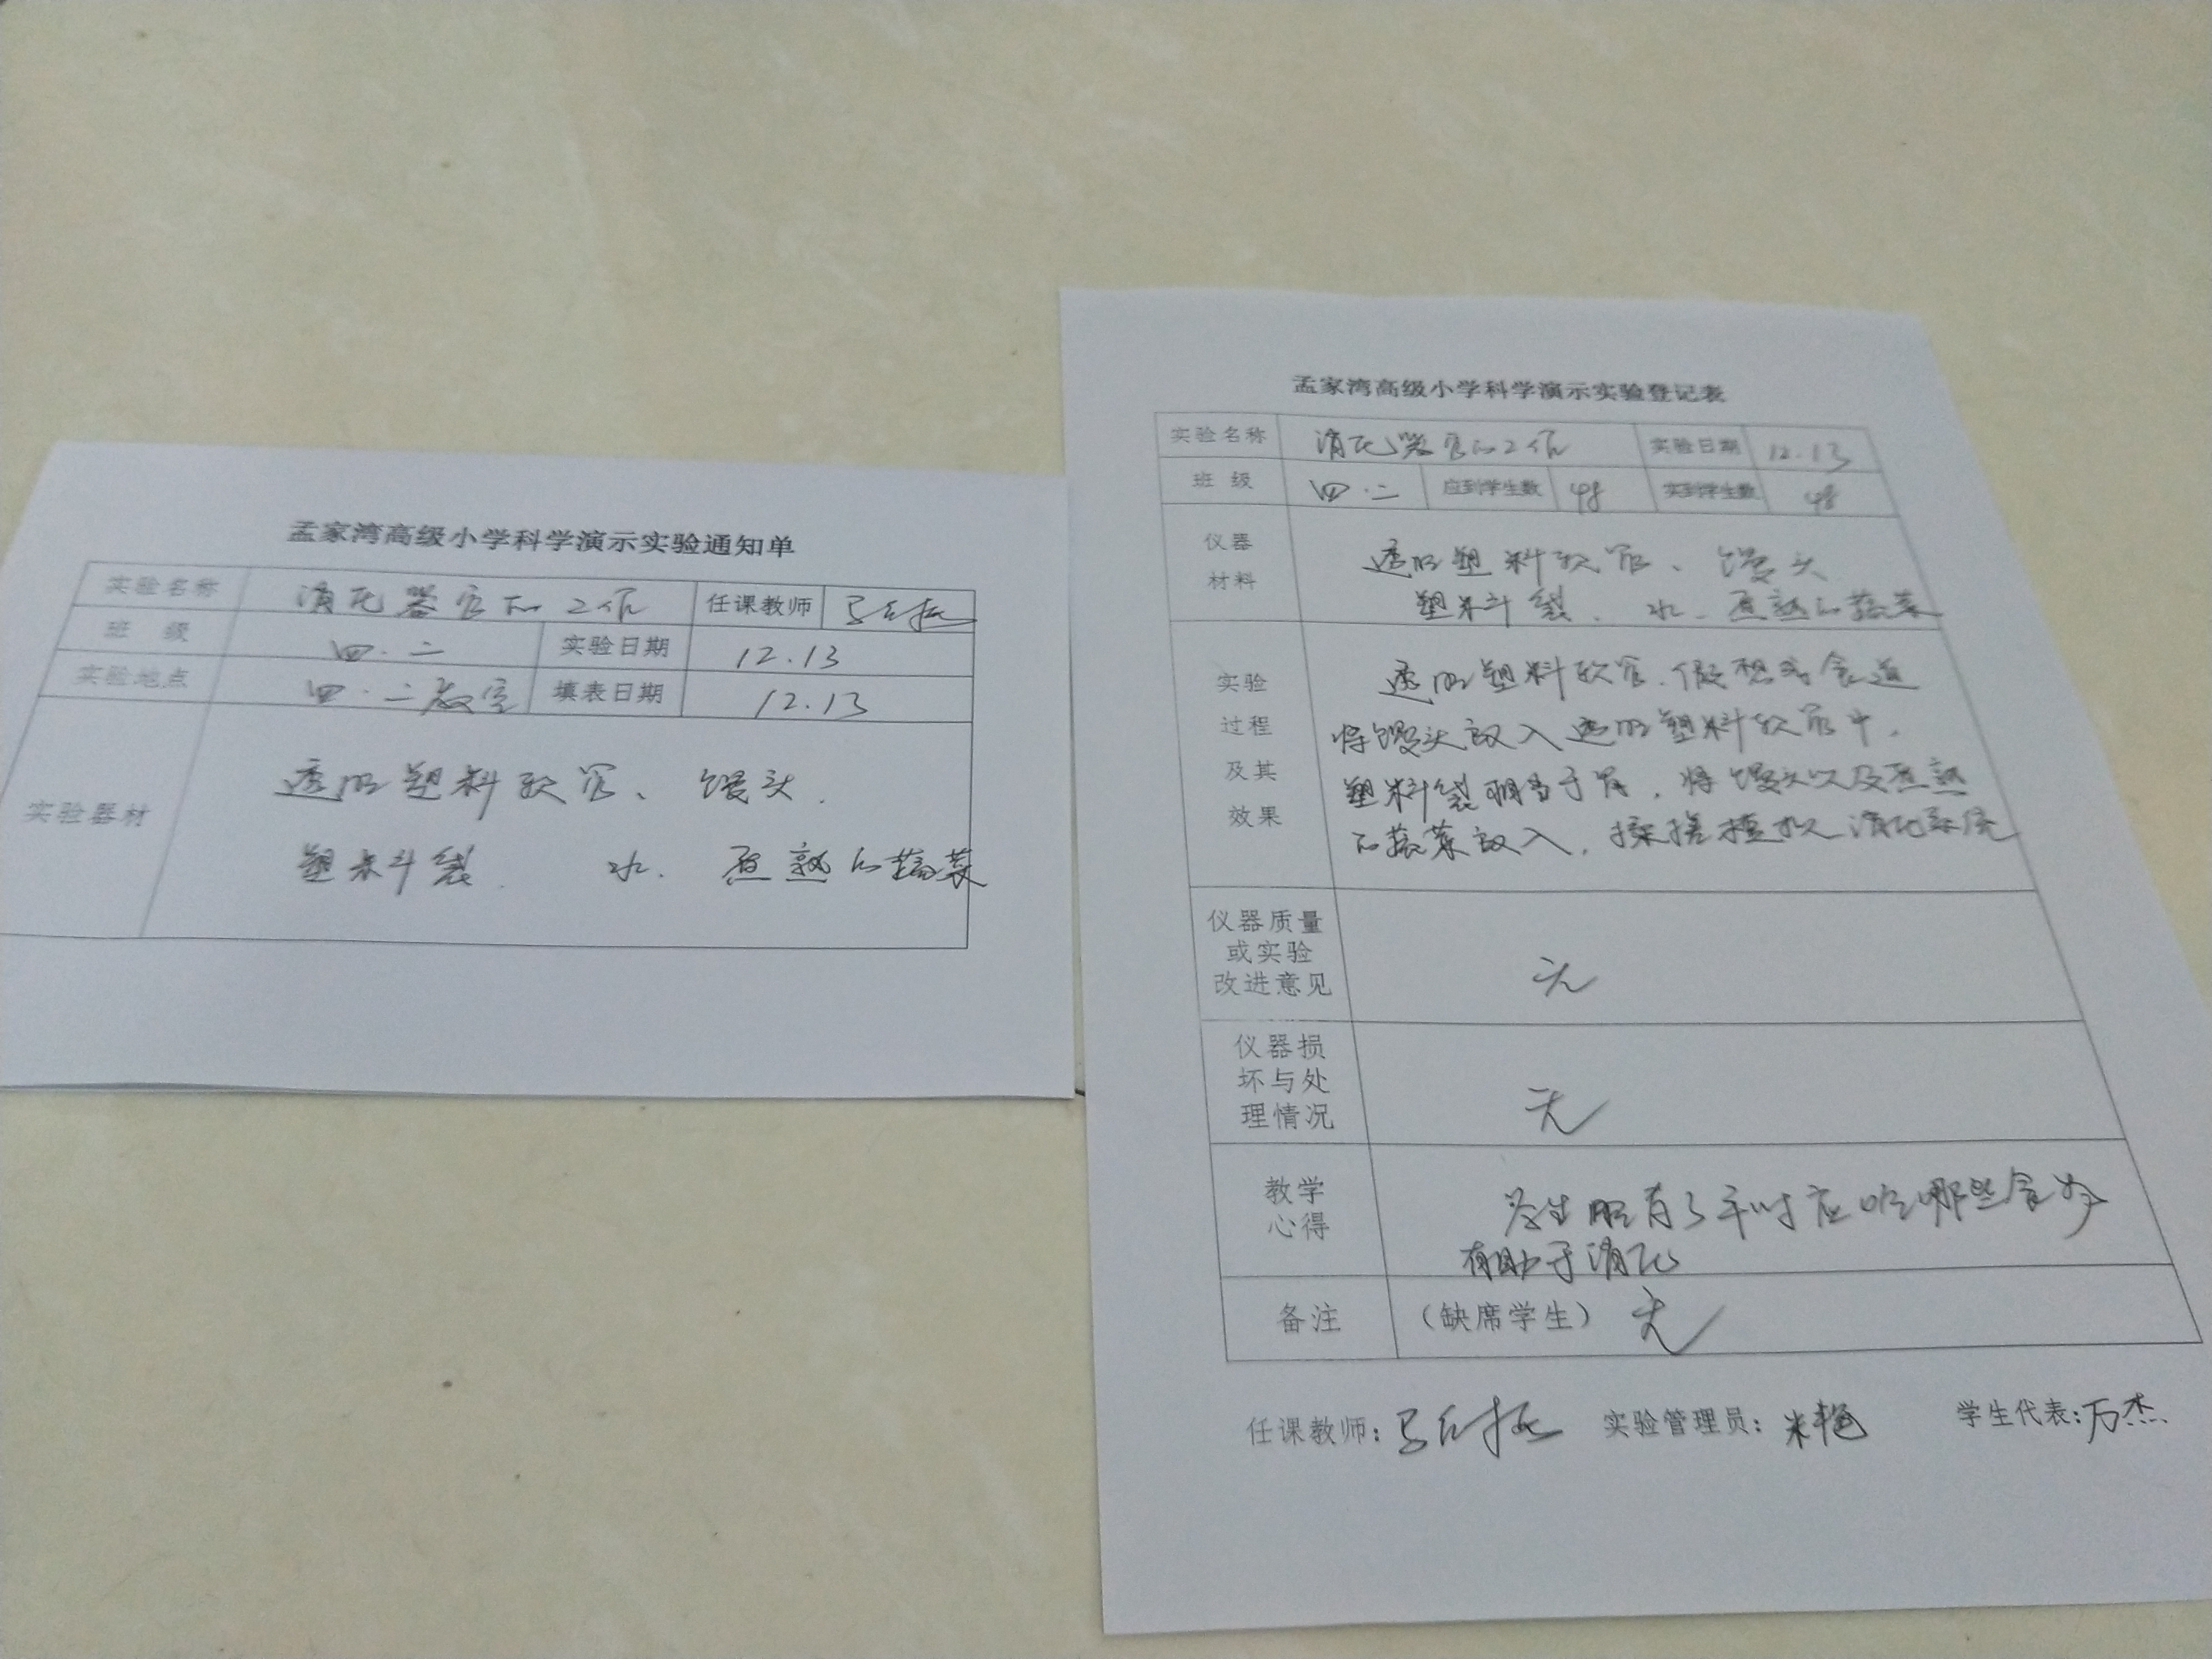 孟家湾高级小学科学演示实验通知单
实验名称 消化器官的工作 任课教师
班 级 四.二 实验日期 12.13
实验地点 四.二教室 填表日期 12.13
实验器材
透明塑料软管、馒头.
塑料袋. 水. 煮熟的蔬菜
孟家湾高级小学科学演示实验登记表
实验名称 消化器官的工作 实验日期 12.13
班 级 四.二 应到学生数 48 实到学生数 48
仪器
材料
透明塑料软管、馒头
塑料袋. 水. 煮熟的蔬菜
实验
过程
及其
效果
透明塑料软管.假想成食道
将馒头放入透明塑料软管中.
塑料袋相当于胃.将馒头以及煮熟
的蔬菜放入.揉搓模拟消化系统
仪器质量
或实验
改进意见
无
仪器损
坏与处
理情况
无
教学
心得
学生明白了平时应吃哪些食物
有助于消化
备注 (缺席学生) 无
任课教师: 实验管理员:米艳 学生代表:万杰